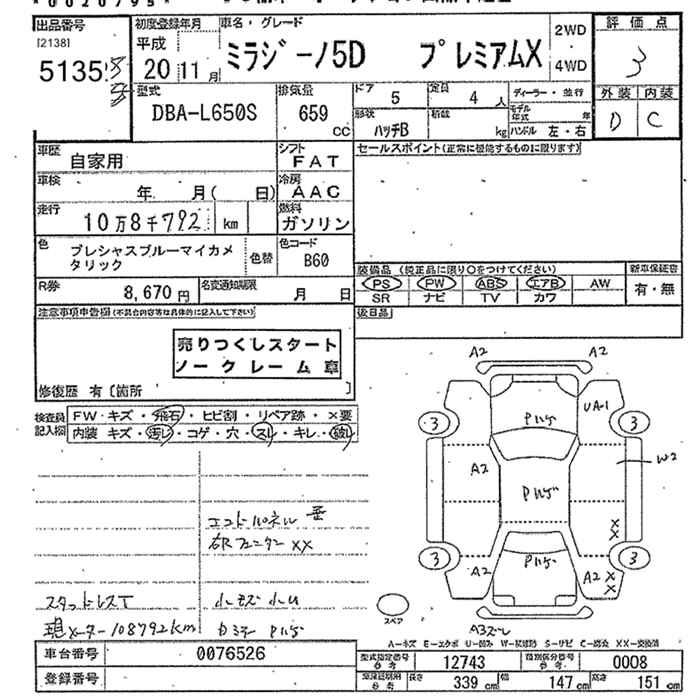 *0020795*
出品番号
[2138]
5135
初度登録年月
平成
20 11月
車名・グレード
ミラジーノ5D プレミアムX
2WD
4WD
評価点
3
外装 内装
D C
型式
DBA-L650S
排気量
659
CC
ドア
5
定員
4人
形状
ハッチB
積載
kg
ディーラー・並行
モデル年式 年
ハンドル 左・右
車歴
自家用
シフト
FAT
車検
年 月( 日)
冷房
AAC
走行
10万8千792 km
燃料
ガソリン
色
プレシャスブルーマイカメタリック
色替
色コード
B60
R券
8,670円
名変通知期限
月 日
セールスポイント(正常に機能するものに限ります)
装備品 (純正品に限り○をつけてください)
PS PW ABS エアB AW
SR ナビ TV カワ
新車保証書
有・無
後日品
注意事項申告欄(不具合内容等は具体的に記入して下さい)
売りつくしスタート
ノークレーム 章
修復歴 有〔箇所 〕
検査員記入欄
FW・キズ・飛石・ヒビ割・リペア跡・×要
内装 キズ・汚れ・コゲ・穴・スレ・キレ・破れ
右Rフェンダー XX
スタッドレスT
現メーター108792km
A2 A2
UA1
3 3
A2
W2
3 3
A2
A2
スペア
A-キズ E-エクボ U-凹み W-板補修 S-サビ C-腐食 XX-交換済
車台番号
0076526
登録番号
型式指定番号
参考
12743
類別区分番号
参考
0008
車検証記載
参考
長さ
339 cm
幅
147 cm
高さ
151 cm